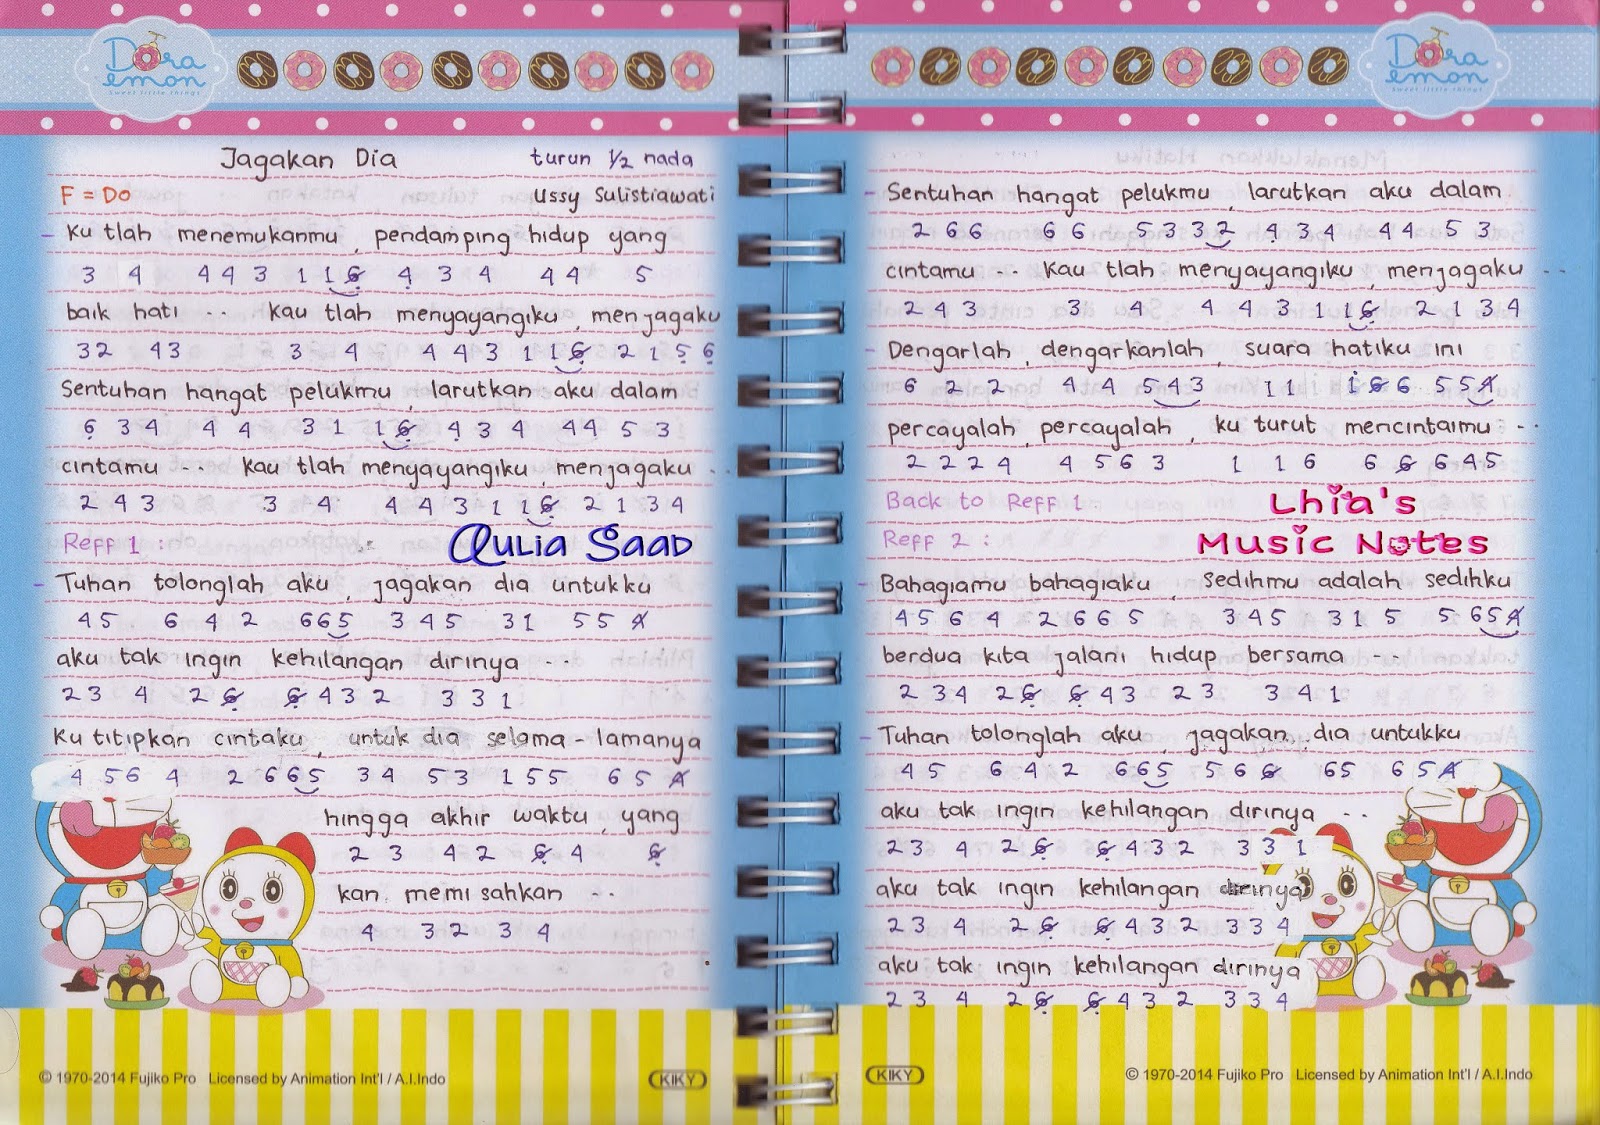 Dora
emon
Sweet little things
Jagakan Dia turun 1/2 nada
F = Do Ussy Sulistiawati
- Ku tlah menemukanmu, pendamping hidup yang
3 4 4 4 3 1 1 6 4 3 4 4 4 5
baik hati .. kau tlah menyayangiku, menjagaku
3 2 4 3 3 4 4 4 3 1 1 6 2 1 5 6
Sentuhan hangat pelukmu, larutkan aku dalam
6 3 4 4 4 3 1 1 6 4 3 4 4 4 5 3
cintamu ... kau tlah menyayangiku, menjagaku ..
2 4 3 3 4 4 4 3 1 1 6 2 1 3 4
Reff 1 : Qulia Saad
- Tuhan tolonglah aku, jagakan dia untukku
4 5 6 4 2 6 6 5 3 4 5 3 1 5 5 4
aku tak ingin kehilangan dirinya ...
2 3 4 2 6 6 4 3 2 3 3 1
Ku titipkan cintaku, untuk dia selama-lamanya
4 5 6 4 2 6 6 5 3 4 5 3 1 5 5 6 5 4
hingga akhir waktu, yang
2 3 4 2 6 4 6
kan memisahkan ..
4 3 2 3 4
© 1970-2014 Fujiko Pro Licensed by Animation Int'l / A.I.Indo KIKY
Dora
emon
Sweet little things
- Sentuhan hangat pelukmu, larutkan aku dalam
2 6 6 6 6 5 3 3 2 4 3 4 4 4 5 3
cintamu ... kau tlah menyayangiku, menjagaku ..
2 4 3 3 4 4 4 3 1 1 6 2 1 3 4
- Dengarlah, dengarkanlah, suara hatiku ini
6 2 2 4 4 5 4 3 1 1 1 6 6 5 5 4
percayalah, percayalah, ku turut mencintaimu ...
2 2 2 4 4 5 6 3 1 1 6 6 6 6 4 5
Back to Reff 1 Lhia's
Reff 2 : Music Notes
- Bahagiamu bahagiaku, sedihmu adalah sedihku
4 5 6 4 2 6 6 5 3 4 5 3 1 5 5 6 5 4
berdua kita jalani hidup bersama ...
2 3 4 2 6 6 4 3 2 3 3 4 1
- Tuhan tolonglah aku, jagakan dia untukku
4 5 6 4 2 6 6 5 5 6 6 6 5 6 5 4
aku tak ingin kehilangan dirinya ..
2 3 4 2 6 6 4 3 2 3 3 1
aku tak ingin kehilangan dirinya
2 3 4 2 6 6 4 3 2 3 3 4
aku tak ingin kehilangan dirinya
2 3 4 2 6 6 4 3 2 3 3 4
KIKY © 1970-2014 Fujiko Pro Licensed by Animation Int'l / A.I.Indo